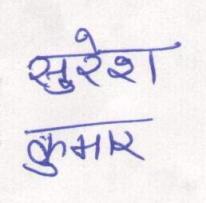 सुरेश
कुमार